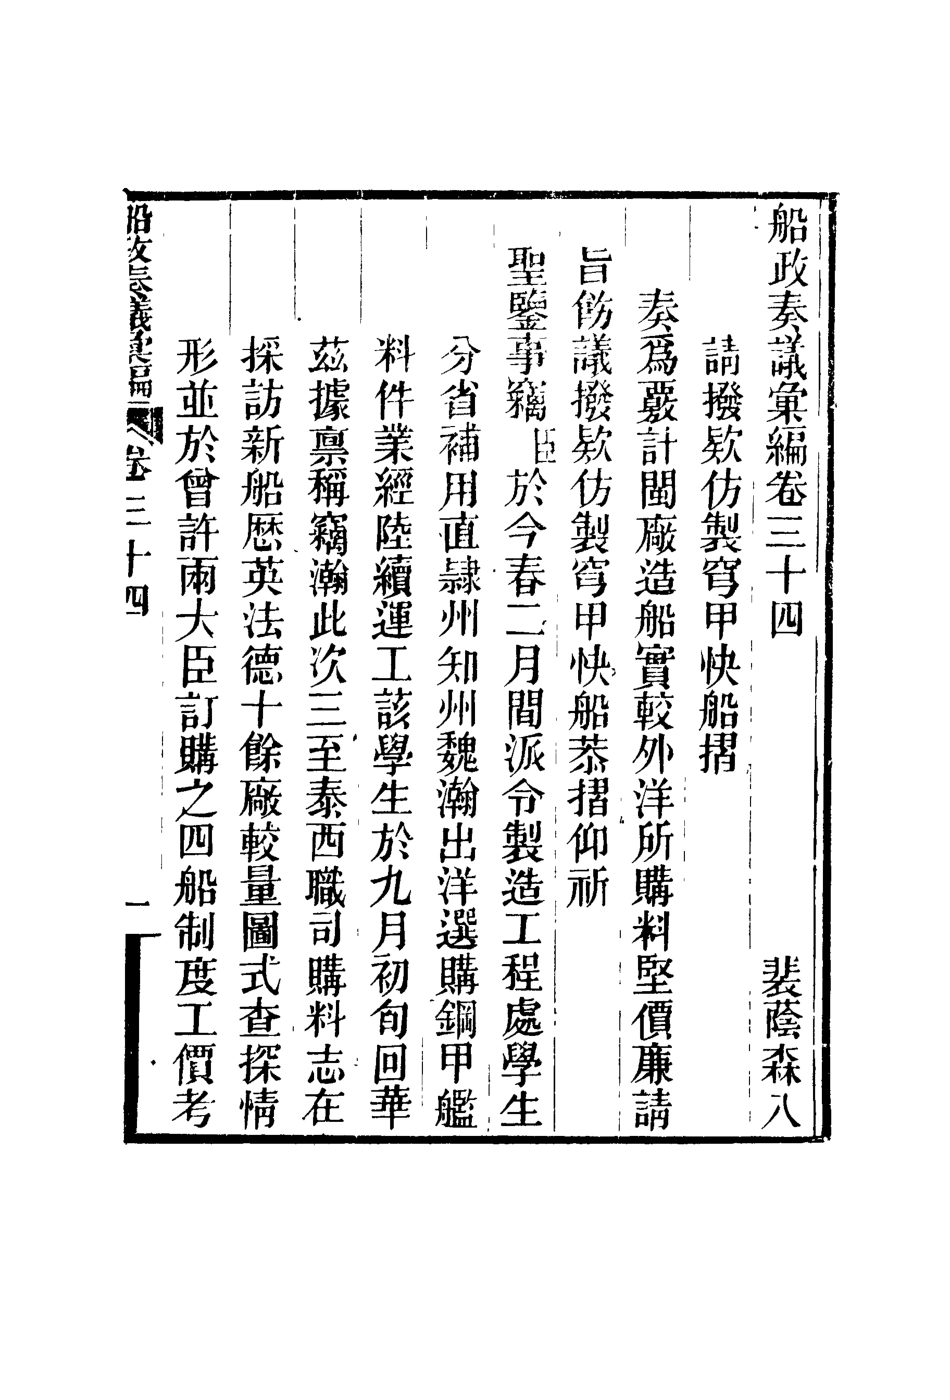 船政奏議彙編卷三十四　裴蔭森八
請撥欵仿製穹甲快船摺
奏爲覈計閩廠造船實較外洋所購料堅價廉請
旨飭議撥欵仿製穹甲快船恭摺仰祈
聖鑒事竊臣於今春二月間派令製造工程處學生
分省補用直隸州知州魏瀚出洋選購鋼甲艦
料件業經陸續運工該學生於九月初旬回華
茲據禀稱竊瀚此次三至泰西職司購料志在
採訪新船歷英法德十餘廠較量圖式查探情
形並於曾許兩大臣訂購之四船制度工價考
船政奏議彙編　卷三十四　一